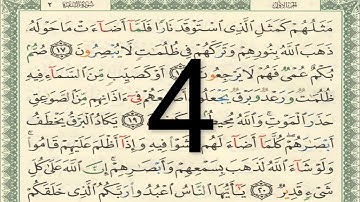 مَثَلُهُمْ كَمَثَلِ الَّذِى اسْتَوْقَدَ نَارًا فَلَمَّا أَضَاءَتْ مَا حَوْلَهُ
ذَهَبَ اللَّهُ بِنُورِهِمْ وَتَرَكَهُمْ فِى ظُلُمَٰتٍ لَّا يُبْصِرُونَ ١٧ صُمٌّ
بُكْمٌ عُمْىٌ فَهُمْ لَا يَرْجِعُونَ ١٨ أَوْ كَصَيِّبٍ مِّنَ السَّمَاءِ فِيهِ
ظُلُمَٰتٌ وَرَعْدٌ وَبَرْقٌ يَجْعَلُونَ فِى ءَاذَانِهِم مِّنَ الصَّوَٰعِقِ
حَذَرَ الْمَوْتِ وَاللَّهُ ١٩ يَكَادُ الْبَرْقُ يَخْطَفُ
أَبْصَٰرَهُمْ كُلَّمَا أَضَاءَ مَّشَوْا فِيهِ وَإِذَا أَظْلَمَ عَلَيْهِمْ قَامُوا
وَلَوْ شَاءَ اللَّهُ لَذَهَبَ بِسَمْعِهِمْ وَأَبْصَٰرِهِمْ إِنَّ اللَّهَ عَلَىٰ كُلِّ
شَىْءٍ قَدِيرٌ ٢٠ يَٰأَيُّهَا النَّاسُ اعْبُدُوا رَبَّكُمُ الَّذِى خَلَقَكُمْ
4